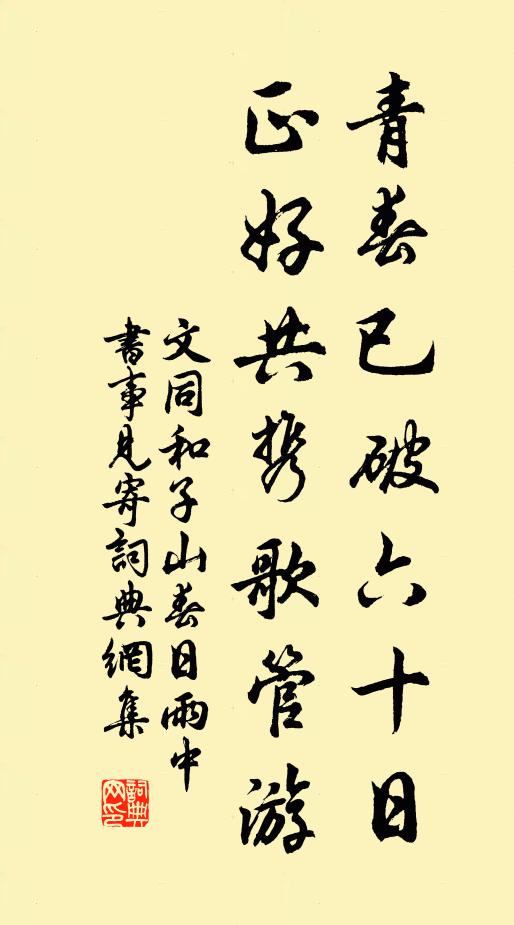 青春已破六十日
正好共携歌管游
文同和子山春日雨中
書事見寄詞典網集
詞典
网印